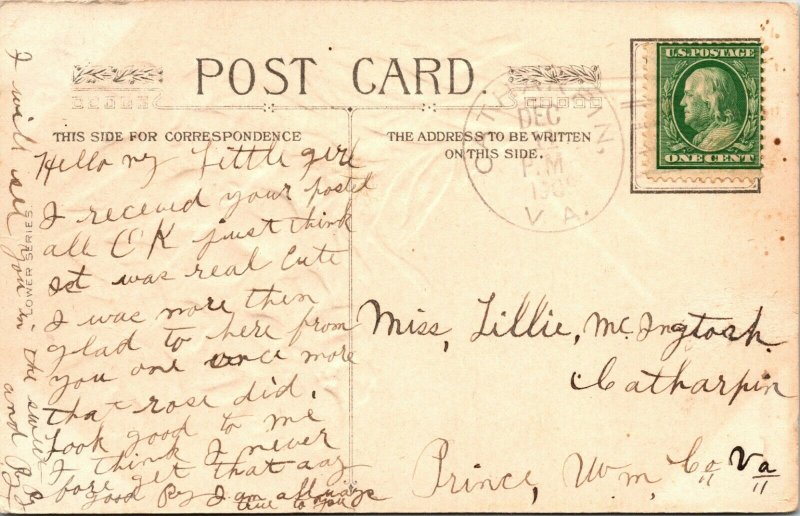 POST CARD.
THIS SIDE FOR CORRESPONDENCE
THE ADDRESS TO BE WRITTEN
ON THIS SIDE.
U.S. POSTAGE
ONE CENT
DEC
P.M
VA.
Hello my Little girl
I receved your postel
all O K just think
it was real Cute
I was more then
glad to here from
you one unce more
that rose did.
Look good to me
I think I never
fore get that
good By I am allways
true to you
I will see you in the
and By
FLOWER SERIES.
Miss, Lillie, Mc.Ingtosh.
Catharpin
Prince, Wm, Co Va